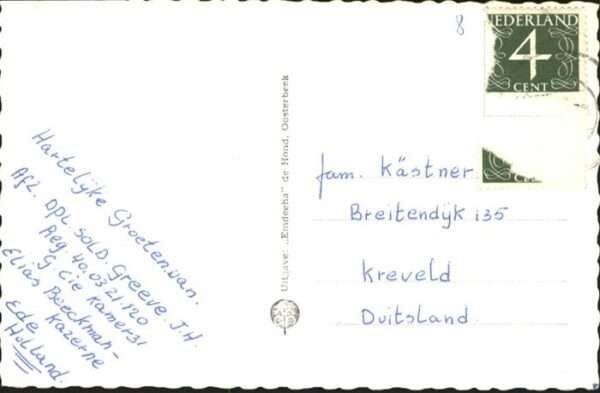 8
NEDERLAND
4
CENT
Hartelijke Groeten.van.
Afz. DPL SOLD. Greeve. J.H.
Reg. 40.03.21.120
G Cie Kamer31
Elias Boeckman-
Kazerne
Ede
Holland.
Uitgave: „Emdeeha” de Hond, Oosterbeek
fam. Kästner
Breitendijk 135
Kreveld
Duitsland